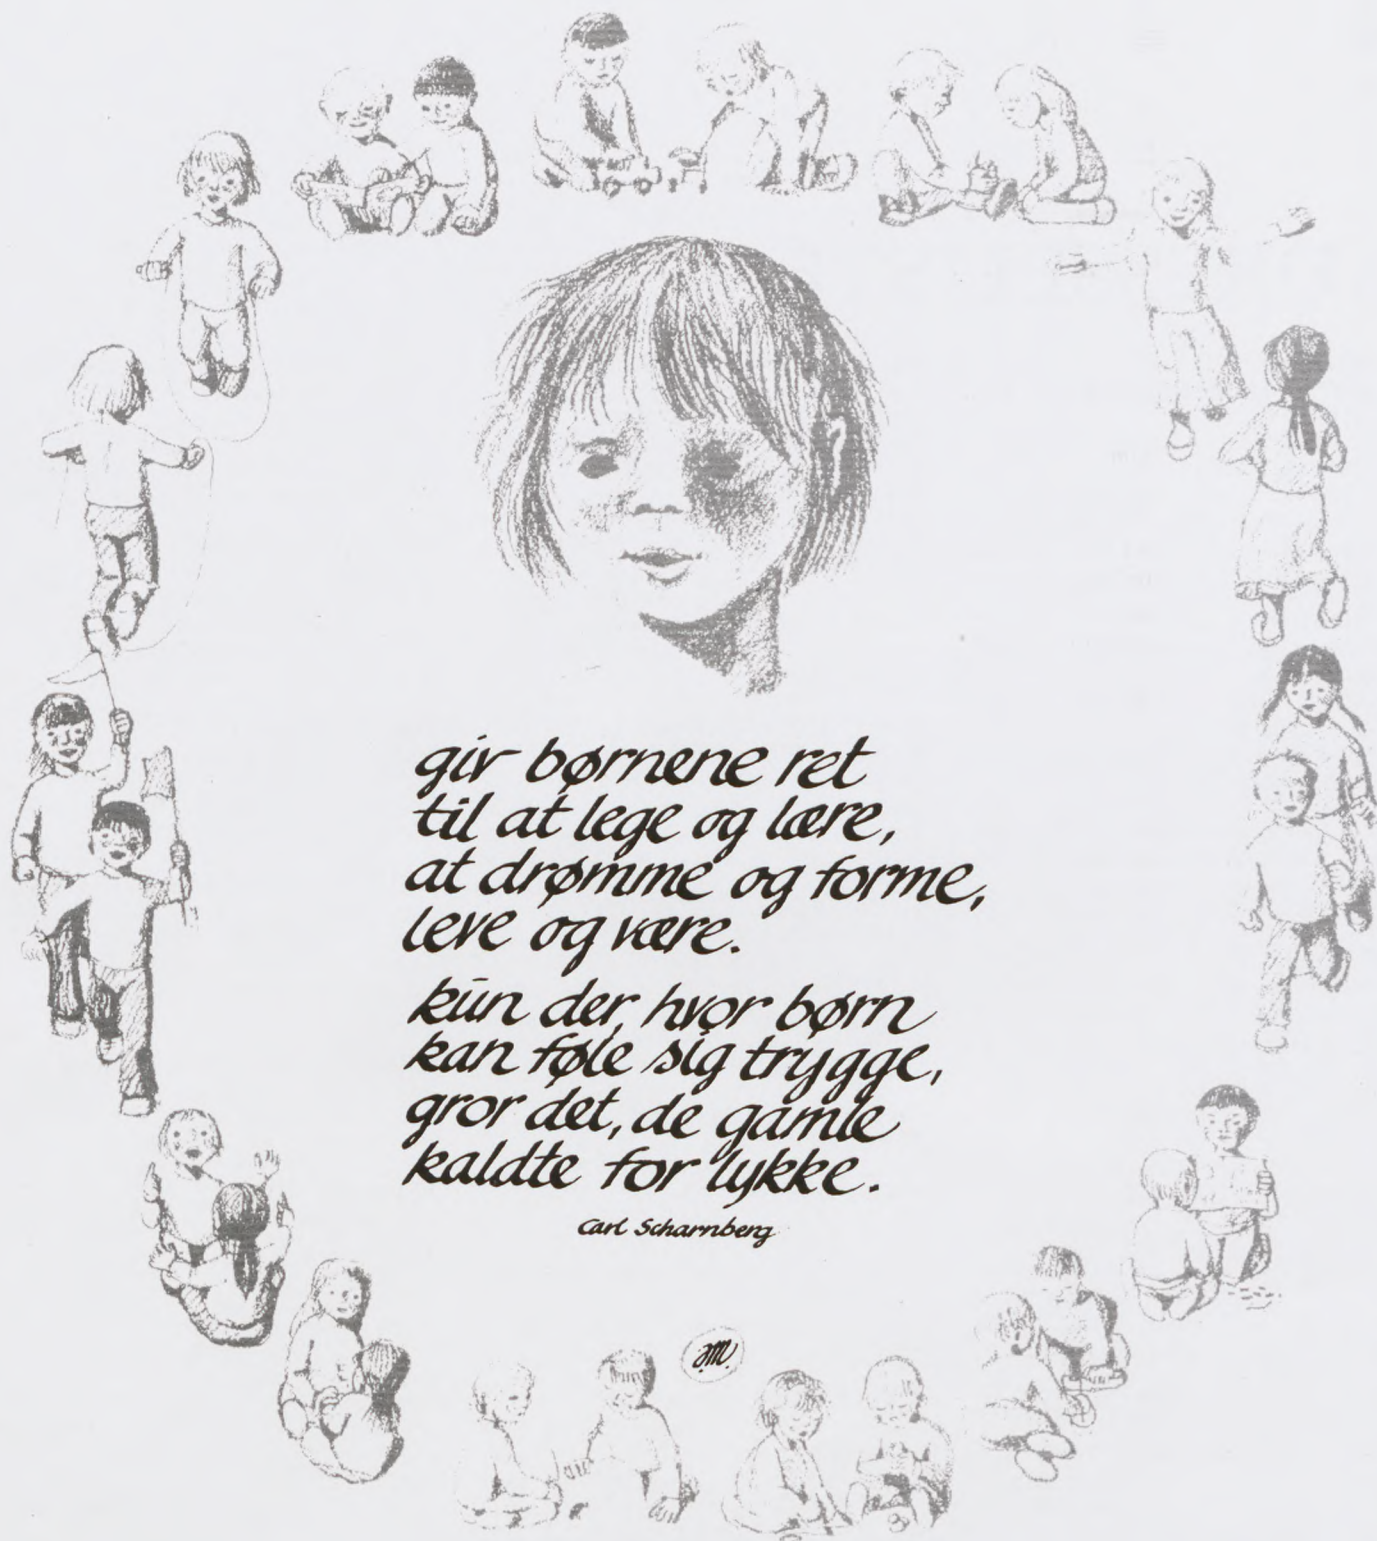 giv børnene ret
til at lege og lære,
at drømme og forme,
leve og være.
kun der, hvor børn
kan føle sig trygge,
gror det, de gamle
kaldte for lykke.
Carl Scharnberg